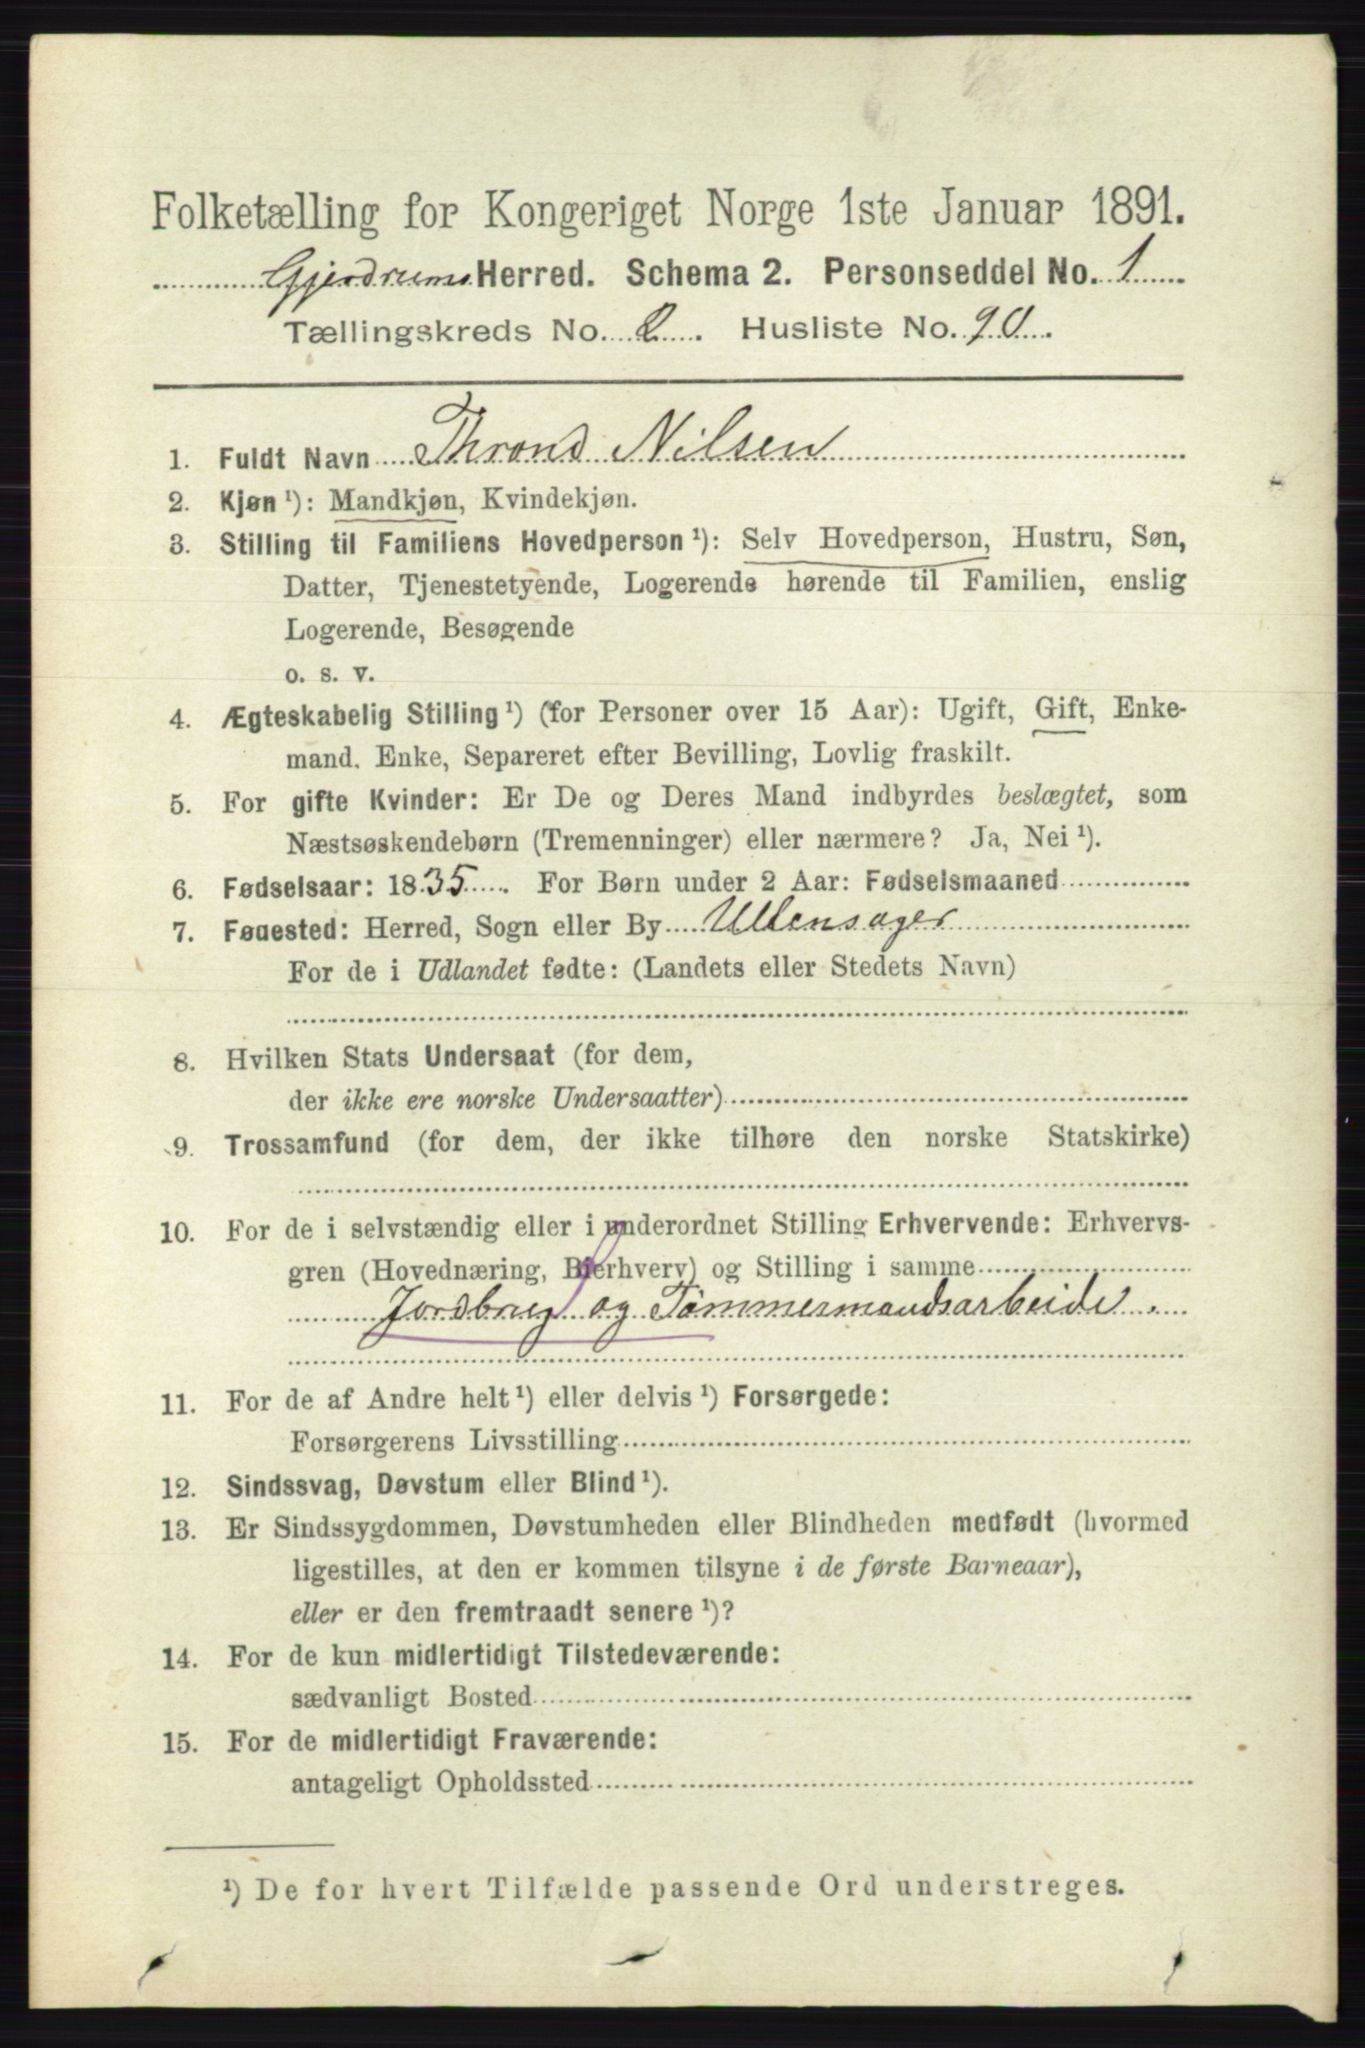 Folketælling for Kongeriget Norge 1ste Januar 1891.
Gjerdrums Herred. Schema 2. Personseddel No. 1
Tællingskreds No. 2. Husliste No. 90.
1. Fuldt Navn Thrond Nilsen
2. Kjøn¹): Mandkjøn, Kvindekjøn.
3. Stilling til Familiens Hovedperson¹): Selv Hovedperson, Hustru, Søn,
Datter, Tjenestetyende, Logerende hørende til Familien, enslig
Logerende, Besøgende
o. s. v.
4. Ægteskabelig Stilling¹) (for Personer over 15 Aar): Ugift, Gift, Enke-
mand, Enke, Separeret efter Bevilling, Lovlig fraskilt.
5. For gifte Kvinder: Er De og Deres Mand indbyrdes beslægtet, som
Næstsøskendebørn (Tremenninger) eller nærmere? Ja, Nei¹).
6. Fødselsaar: 1835. For Børn under 2 Aar: Fødselsmaaned
7. Fødested: Herred, Sogn eller By Ullensager
For de i Udlandet fødte: (Landets eller Stedets Navn)
8. Hvilken Stats Undersaat (for dem,
der ikke ere norske Undersaatter)
9. Trossamfund (for dem, der ikke tilhøre den norske Statskirke)
10. For de i selvstændig eller i underordnet Stilling Erhvervende: Erhvervs-
gren (Hovednæring, Bierhverv) og Stilling i samme
Jordbrug og Tømmermandsarbeide.
11. For de af Andre helt¹) eller delvis¹) Forsørgede:
Forsørgerens Livsstilling
12. Sindssvag, Døvstum eller Blind¹).
13. Er Sindssygdommen, Døvstumheden eller Blindheden medfødt (hvormed
ligestilles, at den er kommen tilsyne i de første Barneaar),
eller er den fremtraadt senere¹)?
14. For de kun midlertidigt Tilstedeværende:
sædvanligt Bosted
15. For de midlertidigt Fraværende:
antageligt Opholdssted
¹) De for hvert Tilfælde passende Ord understreges.